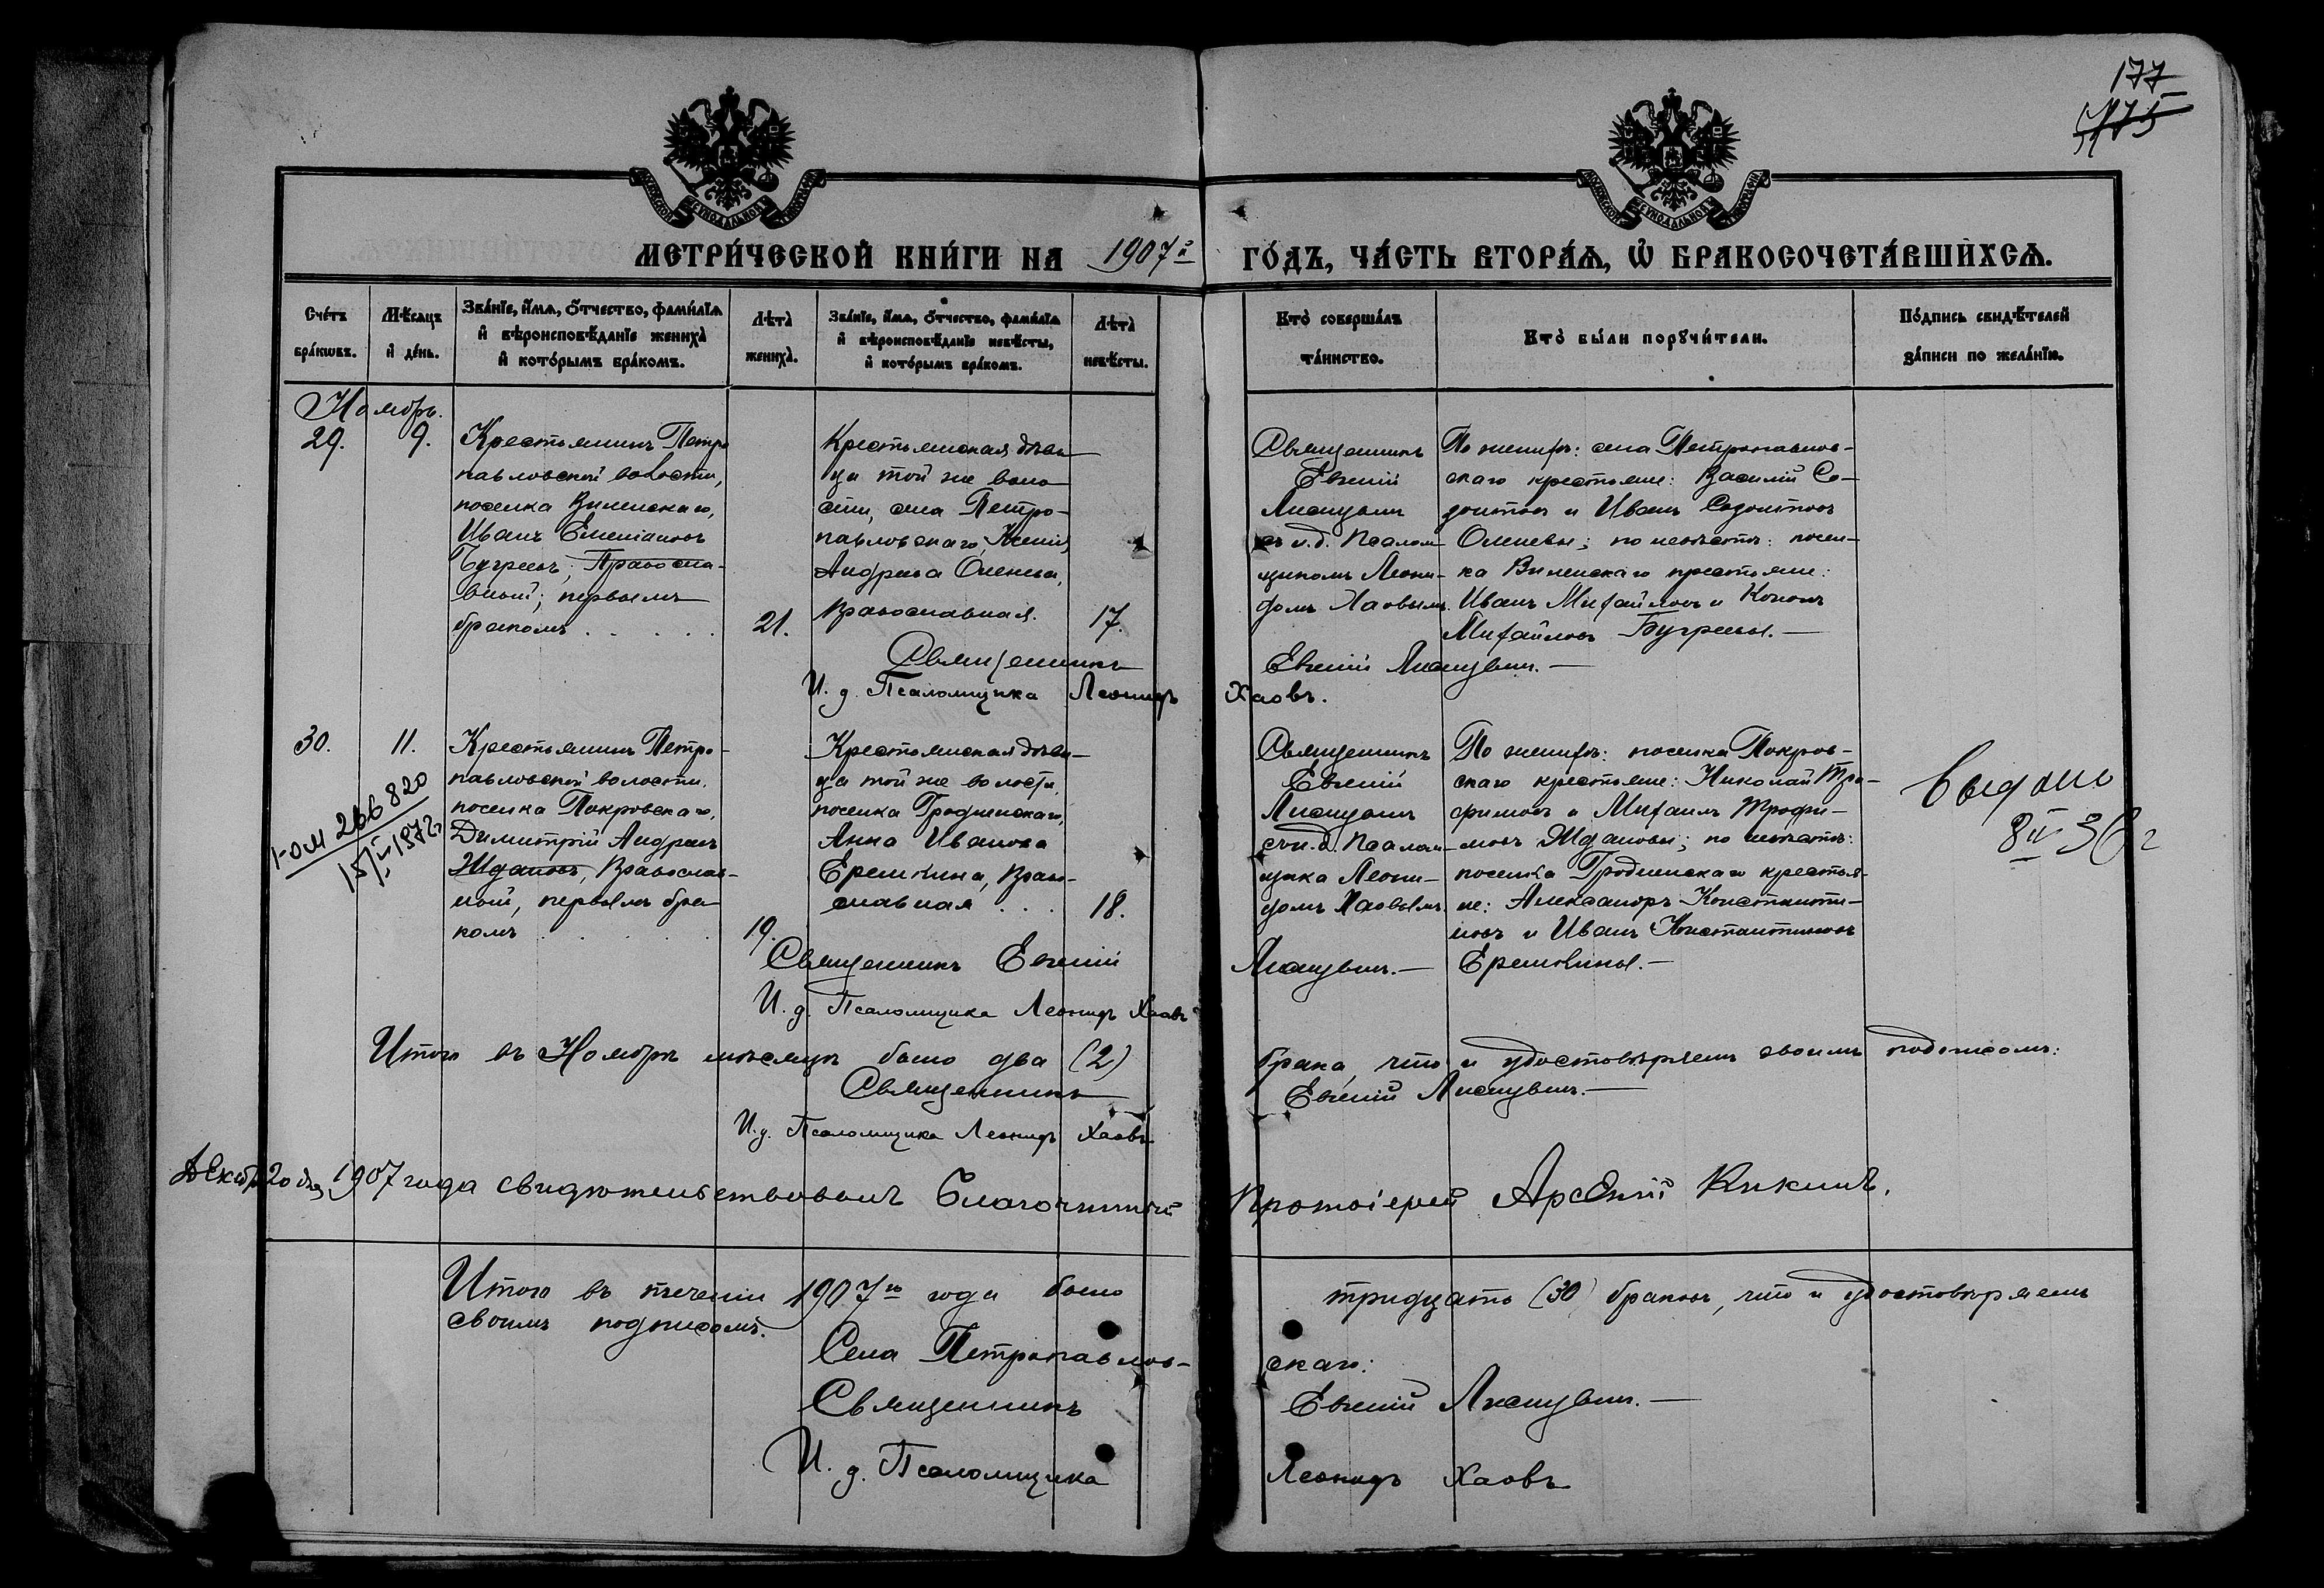 177
175
МОСКОВСКОЙ СѴНОДАЛЬНОЙ ТИПОГРАФІИ
МОСКОВСКОЙ СѴНОДАЛЬНОЙ ТИПОГРАФІИ
МЕТРИ́ЧЕСКОЙ КНИ́ГИ НА 1907й ГО́ДЪ, ЧА́СТЬ ВТОРА́Ѧ, Ѡ҆ БРАКОСОЧЕТА́ВШИХСѦ.
Сче́тъ бра́кѡвъ.
Мѣ́сѧцъ и҆ де́нь.
Зва́нїе, и҆́мѧ, ѻ҆́тчество, фами́лїѧ и҆ вѣроисповѣ́данїе жениха̀ и҆ кото́рымъ бра́комъ.
Лѣта̀ жениха̀.
Зва́нїе, и҆́мѧ, ѻ҆́тчество, фами́лїѧ и҆ вѣроисповѣ́данїе невѣ́сты, и҆ кото́рымъ бра́комъ.
Лѣта̀ невѣ́сты.
Кто̀ соверша́лъ та́инство.
Кто̀ бы́ли порꙋчи́тели.
По́дпись свидѣ́телей за́писи по жела́нїю.
Ноябрь.
29.
9.
Крестьянинъ Петро
павловской волости,
поселка Виленскаго,
Иванъ Емеліановъ
Бугреевъ; Правосла-
вный; первымъ
бракомъ . . . . .
21.
Крестьянская дѣви
ца той же воло
сти, села Петро-
павловскаго, Ксенія
Андреева Оленева,
Православная.
17.
Священникъ
Евгеній
съ и.д. Псалом-
щикомъ Леони-
домъ Хаовымъ.
По женихѣ: села Петропавлов-
скаго крестьяне: Василій
и Иванъ
Оленевы; по невѣстѣ: посел-
ка Виленскаго крестьяне:
Иванъ Михайловъ и Кононъ
Михайловъ Бугреевы.—
Священникъ Евгеній
И. д. Псаломщика Леонидъ Хаовъ.
30.
11.
266820
15/V-1972г
Крестьянинъ Петро-
павловской волости,
поселка Покровскаго,
Димитрій Андреевъ
Ждановъ, Православ-
ный, первымъ бра-
комъ . . . . .
19.
Крестьянская дѣви-
ца той же волости,
поселка Гродненскаго,
Анна Иванова
Еремкина, Право-
славная . . .
18.
Священникъ
Евгеній
съ и.д. Псалом-
щика Леони-
домъ Хаовымъ.
По женихѣ: поселка Покров-
скаго крестьяне: Николай Тро-
фимовъ и Михаилъ Трофи-
мовъ Ждановы; по невѣстѣ:
поселка Гродненскаго крестья-
не: Александръ Константи-
новъ и Иванъ Константиновъ
Еремкины.—
Выдано
8 IV 36 г
Священникъ Евгеній
И. д. Псаломщика Леонидъ Хаовъ
Итого въ Ноябрѣ мѣсяцѣ было два (2) брака, что и удостовѣряемъ своимъ подписомъ:
Священникъ Евгеній
И. д. Псаломщика Леонидъ Хаовъ
Декабр 20 дня 1907 года свидѣтельствовалъ Благочинный Протоіерей Арсеній Кикинъ.
Итого въ теченіи 1907го года было тридцать (30) браковъ, что и удостовѣряемъ
своимъ подписомъ.
Села Петропавловскаго:
Священникъ Евгеній
И. д. Псаломщика Леонидъ Хаовъ